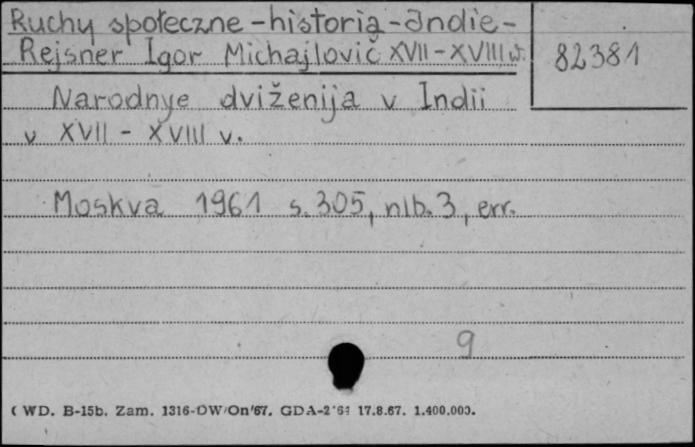 Ruchy społeczne - historia - Indie -
Rejsner Igor Michajlovič XVII - XVIII w.
82381
Narodnye dviženija v Indii
v XVII - XVIII v.
Moskva 1961 s. 305, nlb. 3, err.
9
( WD. B-15b. Zam. 1316-DW/On/67. GDA-2 17.8.67. 1.400.000.